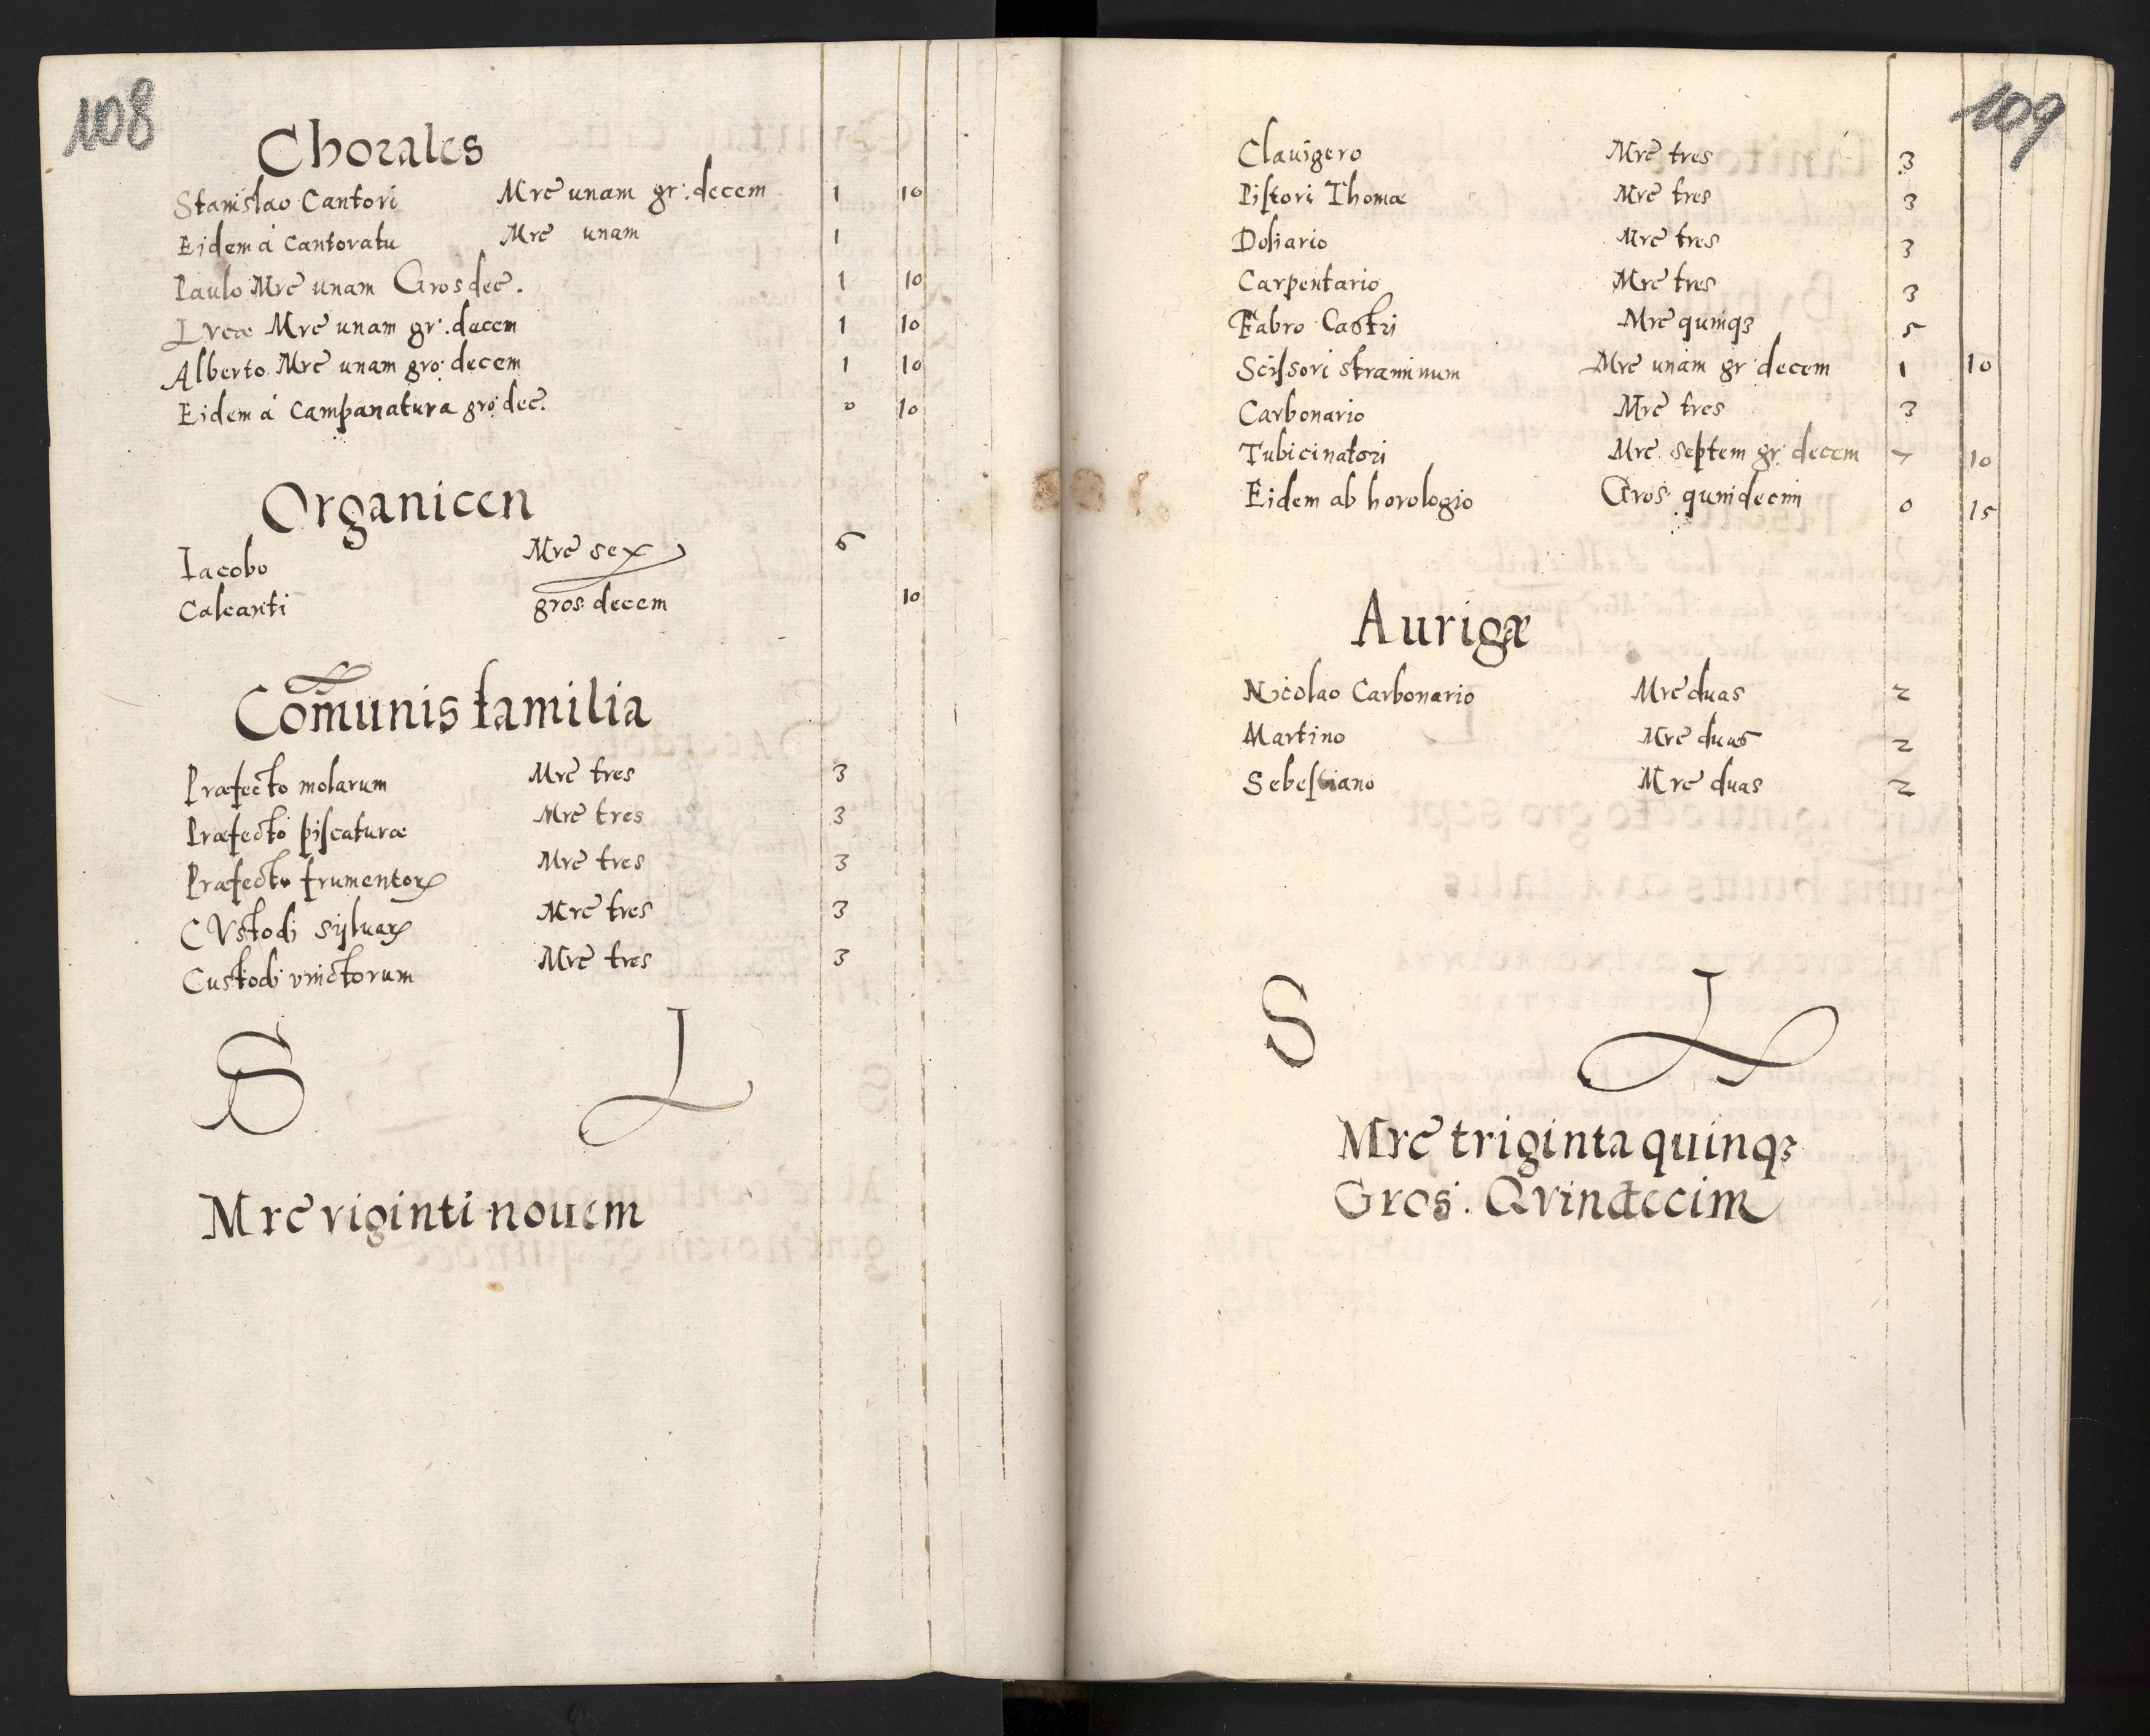 108
Chorales
Stanislao Cantori Mrc̃ unam gr: decem 1 10
Eidem á Cantoratu Mrc̃ unam 1
Paulo Mrc̃ unam Gros dec̃. 1 10
Lvcæ Mrc̃ unam gr: decem 1 10
Alberto Mrc̃ unam gro: decem 1 10
Eidem á Campanatura gro: dec̃. 0 10
Organicen
Iacobo Mrc̃ sex 6
Calcanti gros: decem 10
Com̃unis familia
Præfecto molarum Mrc̃ tres 3
Præfecto piscaturæ Mrc̃ tres 3
Præfecto frumentorꝝ Mrc̃ tres 3
CVstodi sylvarꝝ Mrc̃ tres 3
Custodi vinctorum Mrc̃ tres 3
S L
Mrc̃ viginti nouem
109
Clauigero Mrc̃ tres 3
Pistori Thomæ Mrc̃ tres 3
Doliario Mrc̃ tres 3
Carpentario Mrc̃ tres 3
Fabro Castri Mrc̃ quinqꝫ 5
Scissori straminum Mrc̃ unam gr: decem 1 10
Carbonario Mrc̃ tres 3
Tubicinatori Mrc̃ septem gr: decem 7 10
Eidem ab horologio Gros: quindecim 0 15
Aurigæ
Nicolao Carbonario Mrc̃ duas 2
Martino Mrc̃ duas 2
Sebestiano Mrc̃ duas 2
S L
Mrc̃ triginta quinqꝫ
Gros. Qvindecim